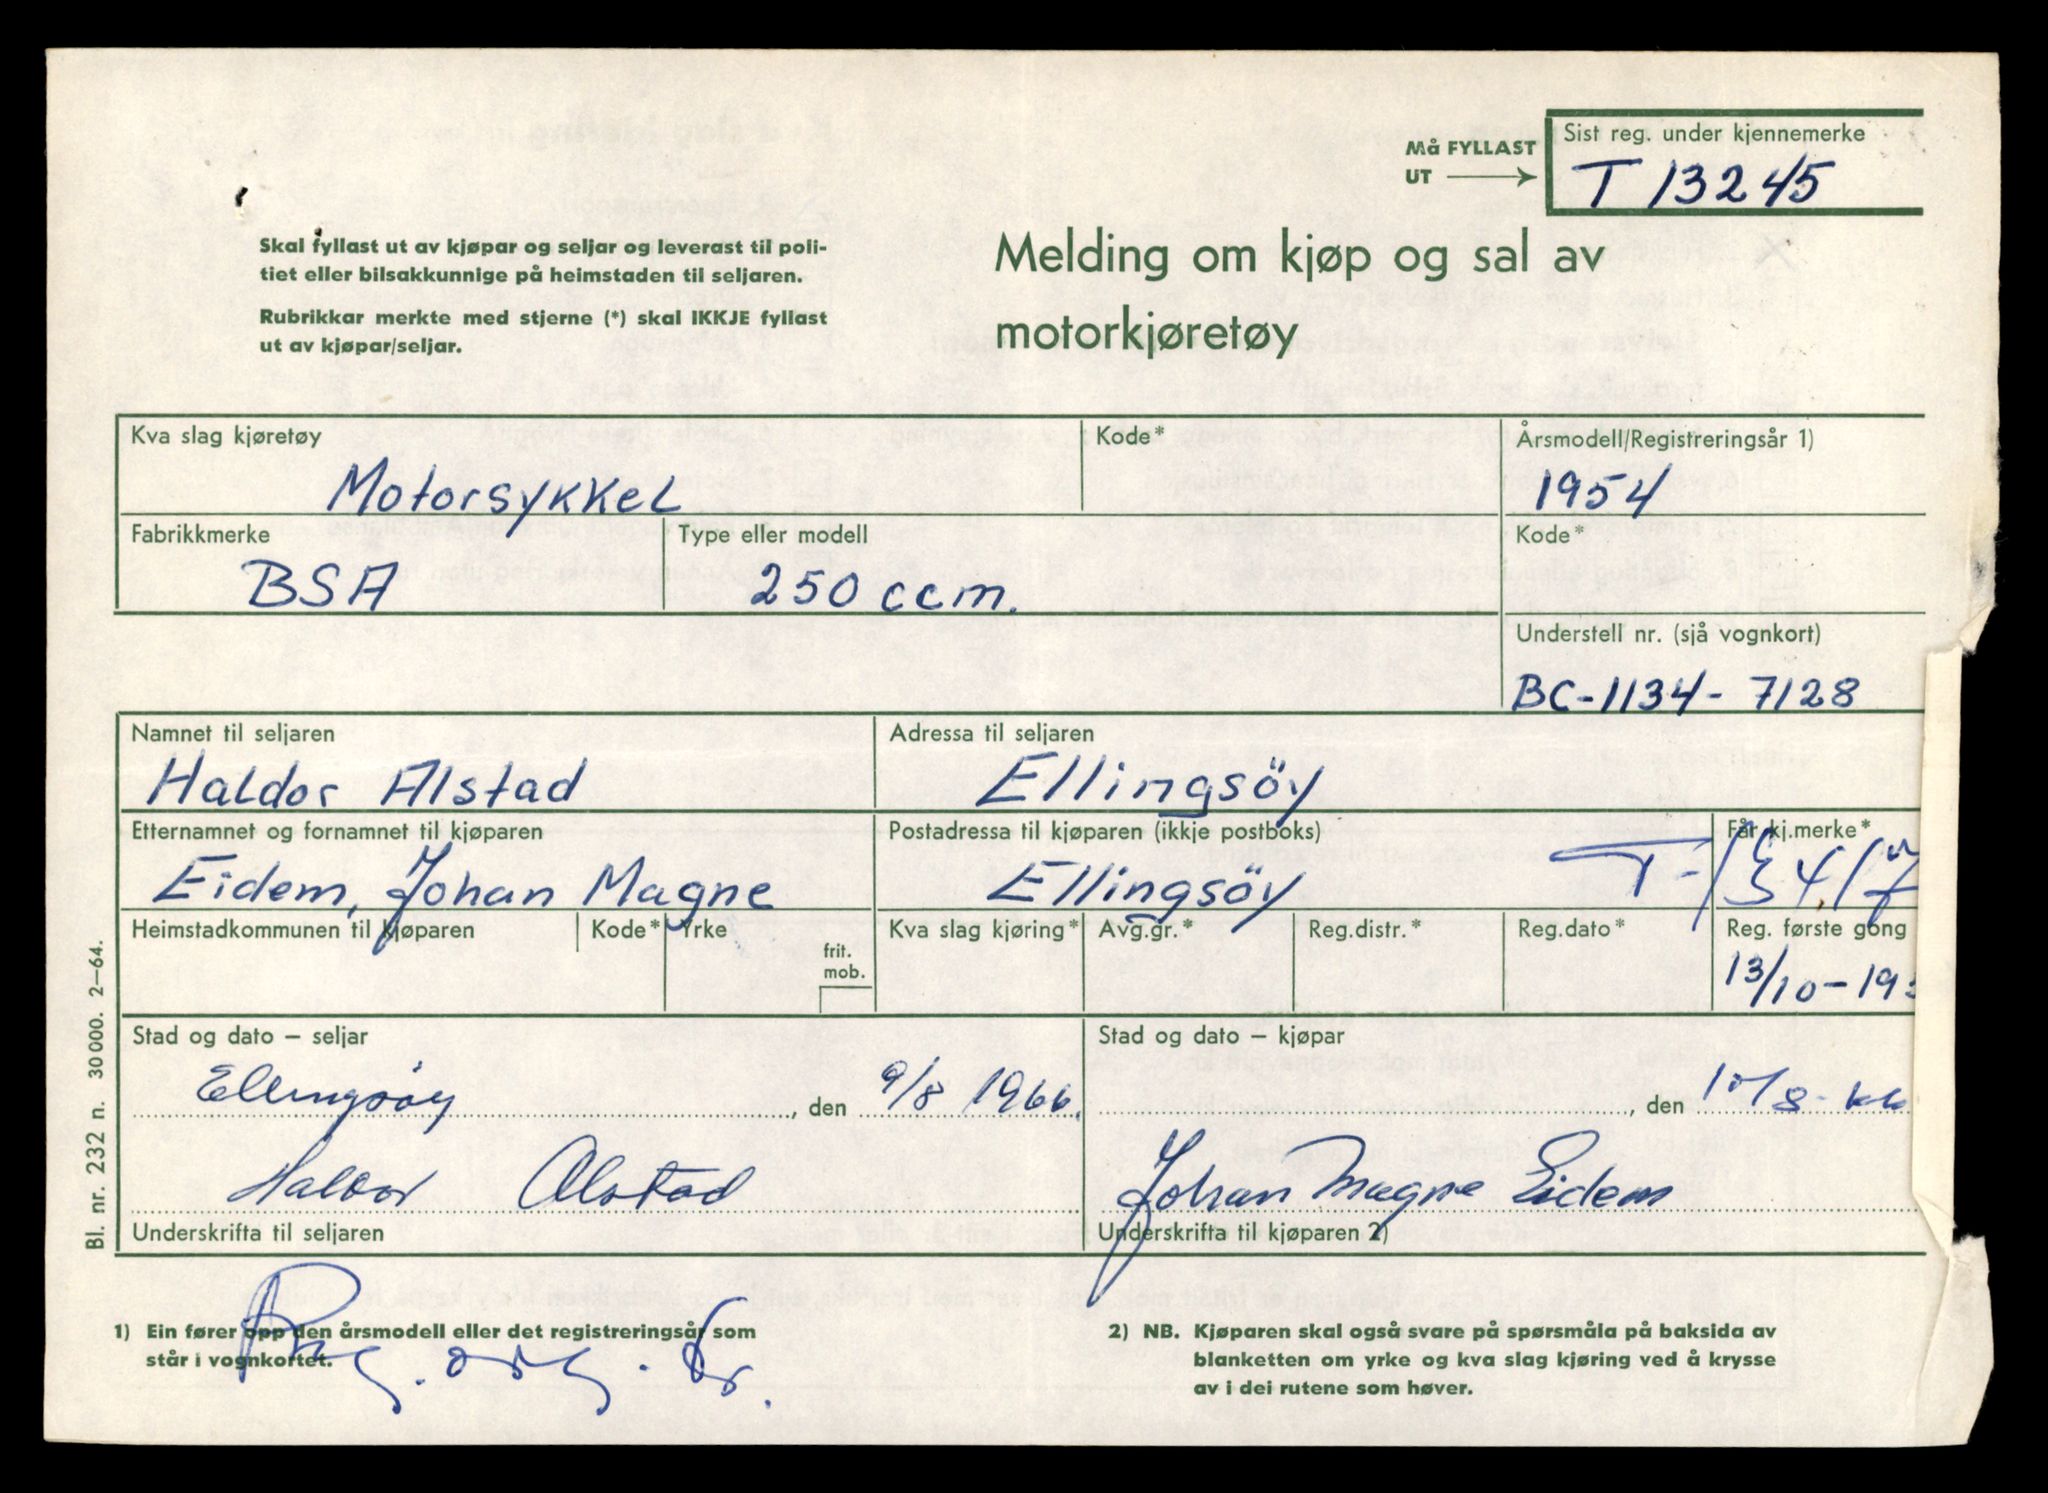 Sist reg. under kjennemerke
Må FYLLAST
UT
T 13245
Skal fyllast ut av kjøpar og seljar og leverast til poli-
tiet eller bilsakkunnige på heimstaden til seljaren.
Rubrikkar merkte med stjerne (*) skal IKKJE fyllast
ut av kjøpar/seljar.
Melding om kjøp og sal av
motorkjøretøy
Kva slag kjøretøy
Kode*
Årsmodell/Registreringsår 1)
Motorsykkel
1954
Fabrikkmerke
Type eller modell
Kode*
BSA
250 ccm.
Understell nr. (sjå vognkort)
BC-1134-7128
Namnet til seljaren
Adressa til seljaren
Haldor Alstad
Ellingsöy
Etternamnet og fornamnet til kjøparen
Postadressa til kjøparen (ikkje postboks)
Får kj.merke*
Eidem, Johan Magne
Ellingsöy
Heimstadkommunen til kjøparen
Kode*
Yrke
frit.
mob.
Kva slag kjøring*
Avg.gr.*
Reg.distr.*
Reg.dato*
Reg. første gong
13/10-195
Stad og dato – seljar
Stad og dato – kjøpar
Ellingsöy, den 9/8 1966.
, den 10/8-66
Haldor Alstad
Johan Magne Eidem
Underskrifta til seljaren
Underskrifta til kjøparen 2)
Bl. nr. 232 n. 30 000. 2—64.
1) Ein fører opp den årsmodell eller det registreringsår som
står i vognkortet.
2) NB. Kjøparen skal også svare på spørsmåla på baksida av
blanketten om yrke og kva slag kjøring ved å krysse
av i dei rutene som høver.